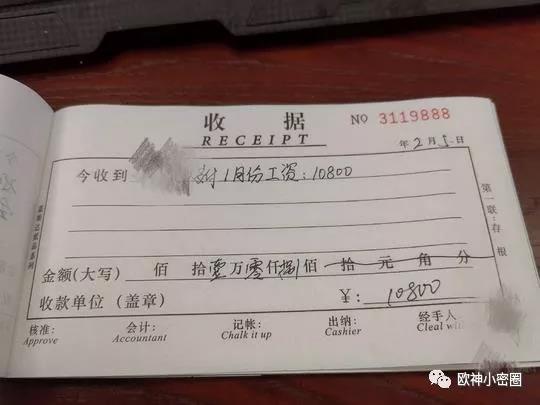 收 据
RECEIPT
No 3119888
年 2 月 5 日
今收到 付1月份工资:10800
金额(大写) 佰 拾壹万零仟捌佰 拾 元 角 分
收款单位(盖章) ¥: 10800
核准: 会计: 记帐: 出纳: 经手人
Approve Accountant Chalk it up Cashier Cleal wit
第一联:存根
欧神小密圈